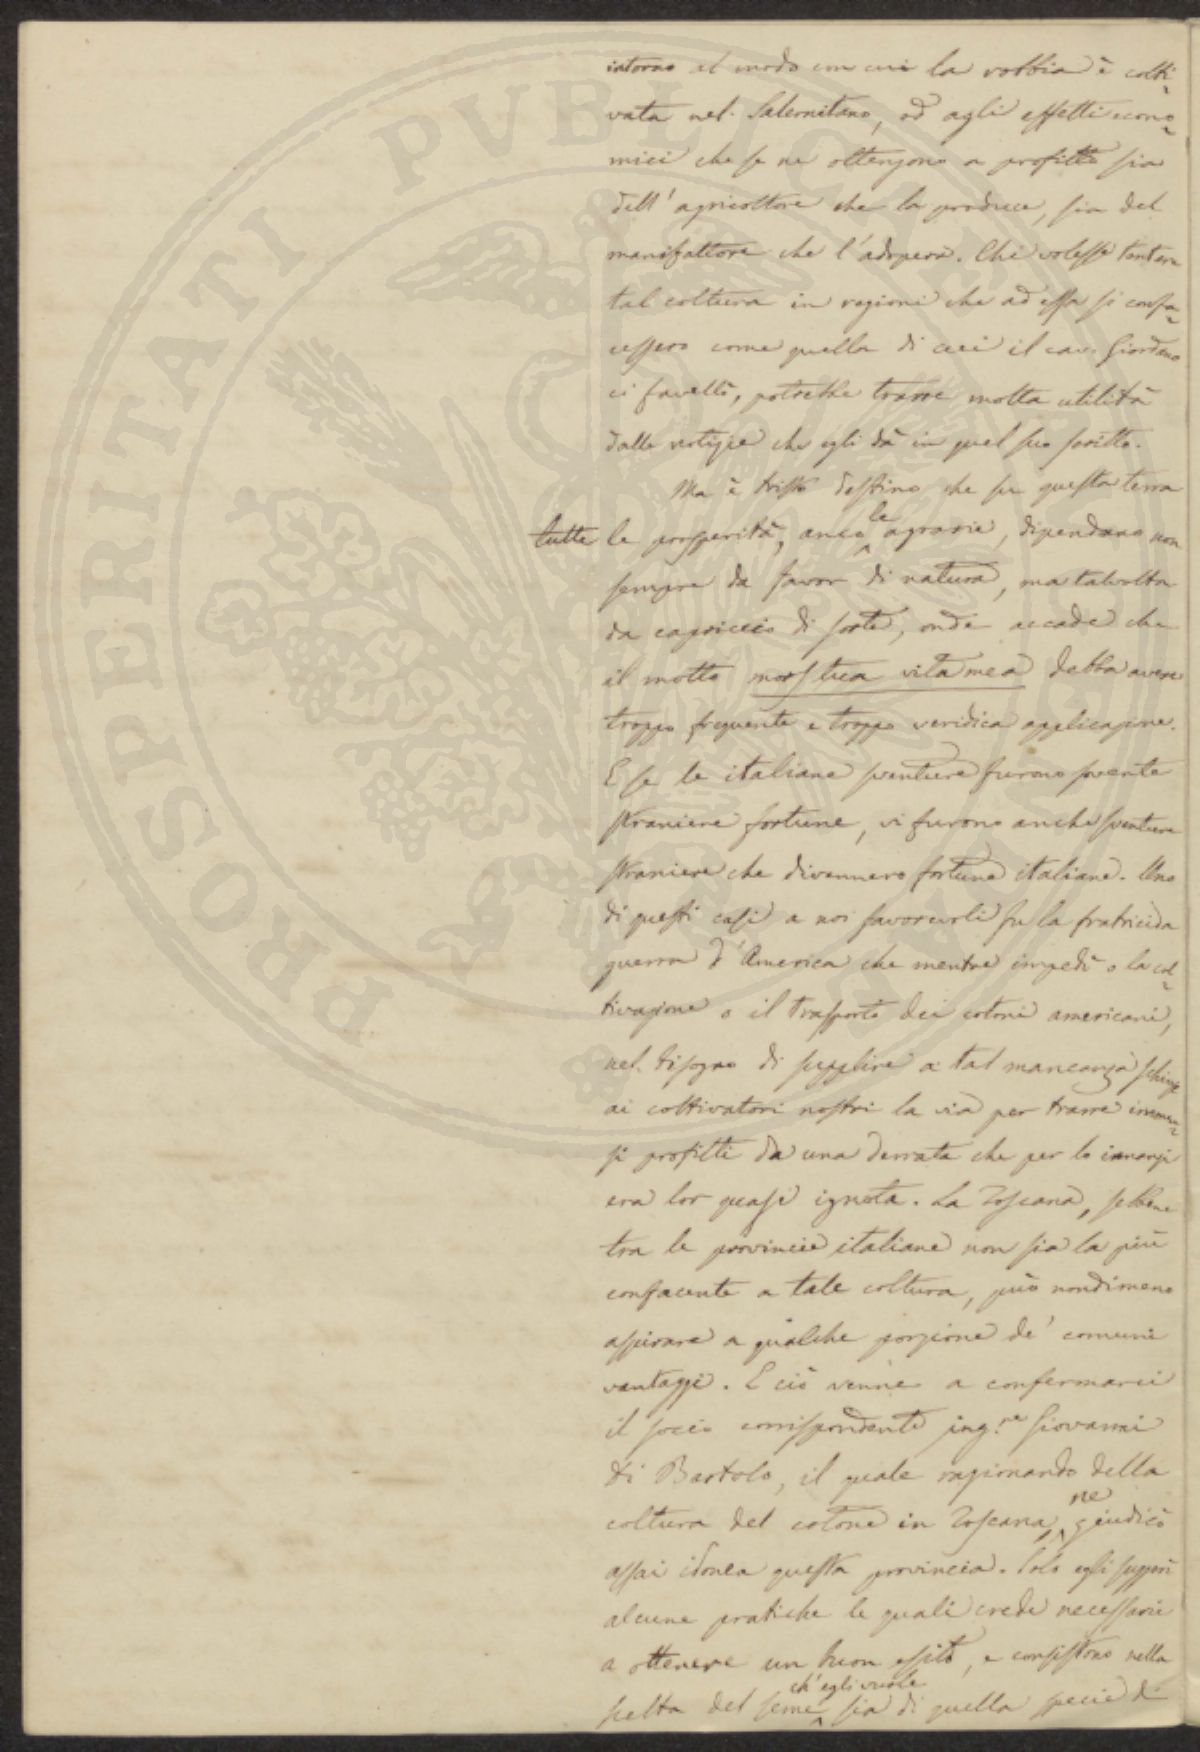 intorno al modo con cui la robbia è colti-
vata nel Salernitano, ed agli effetti econo-
mici che se ne ottengono a profitto sia
dell'agricoltore che la produce, sia del
manifattore che l'adopera. Chi volesse tentare
tal coltura in regioni che ad essa si confa-
cessero come quella di cui il cav. Giordano
ci favellò, potrebbe trarre molta utilità
dalle notizie che egli dà in quel suo scritto.
Ma è tristo destino che su questa terra
tutte le prosperità, anco le agrarie, dipendano non
sempre da favor di natura, ma talvolta
da capriccio di sorte, onde accade che
il motto mors tua vita mea debba avere
troppo frequente e troppo veridica applicazione.
E se le italiane sventure furono sovente
straniere fortune, vi furono anche sventure
straniere che divennero fortune italiane. Uno
di questi casi a noi favorevoli fu la fratricida
guerra d'America che mentre impedì o la col-
tivazione o il trasporto dei cotoni americani,
nel bisogno di supplire a tal mancanza schiuse
ai coltivatori nostri la via per trarre immen-
si profitti da una derrata che per lo innanzi
era lor quasi ignota. La Toscana, sebbene
tra le provincie italiane non sia la più
confacente a tale coltura, può nondimeno
aspirare a qualche porzione de' comuni
vantaggi. E ciò venne a confermarci
il socio corrispondente ing.re Giovanni
di Bartolo, il quale ragionando della
coltura del cotone in Toscana, ne giudicò
assai idonea questa provincia. Solo egli suggerì
alcune pratiche le quali crede necessarie
a ottenere un buon esito, e consistono nella
scelta del seme ch'egli vuole sia di quella specie di
PROSPERITATI PUBLICAE